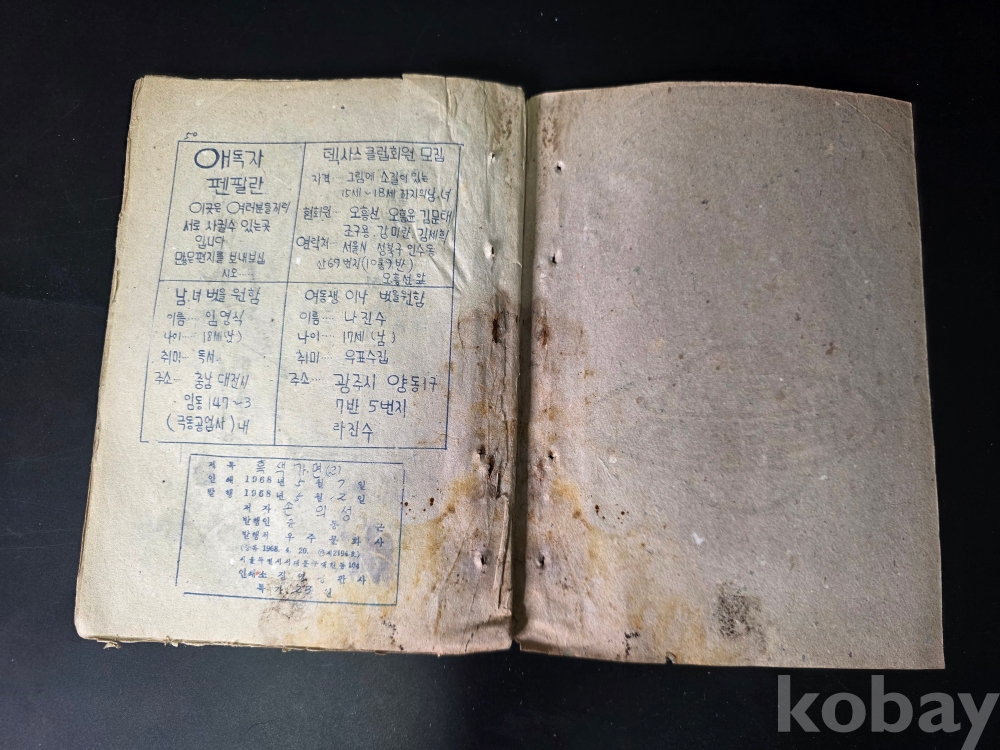 50
애독자
펜팔란
이곳은 여러분들끼리
서로 사귈수 있는곳
입니다
많은편지를 보내보십
시오....
덱사스 클럽회원 모집
자격.... 그림에 소질이 있는
15세~18세 까지의 남,녀
현회원... 오흥선 오흥윤 김문대
조구용, 김미란 김세희
연락처... 서울시 성북구 인수동
산69번지(10통9반)
오흥선 앞
남,녀 벗을 원함
이름.... 임영식
나이.... 18세(남)
취미.... 독서
주소.... 충남 대전시
임동 147~3
(극동공업사)내
여동생 이나 벗을원함
이름.... 나진수
나이.... 17세(남)
취미.... 우표수집
주소.... 광주시 양동1구
7반 5번지
라진수
제목 흑색가면(2)
인쇄 1968년 5월 7일
발행 1968년 5월 2일
저자 손의성
발행인 윤동근
발행처 우주문화사
(등록 1968. 4. 20. 제2194호)
서울특별시서대문구 104
인쇄소 판사
특가
kobay